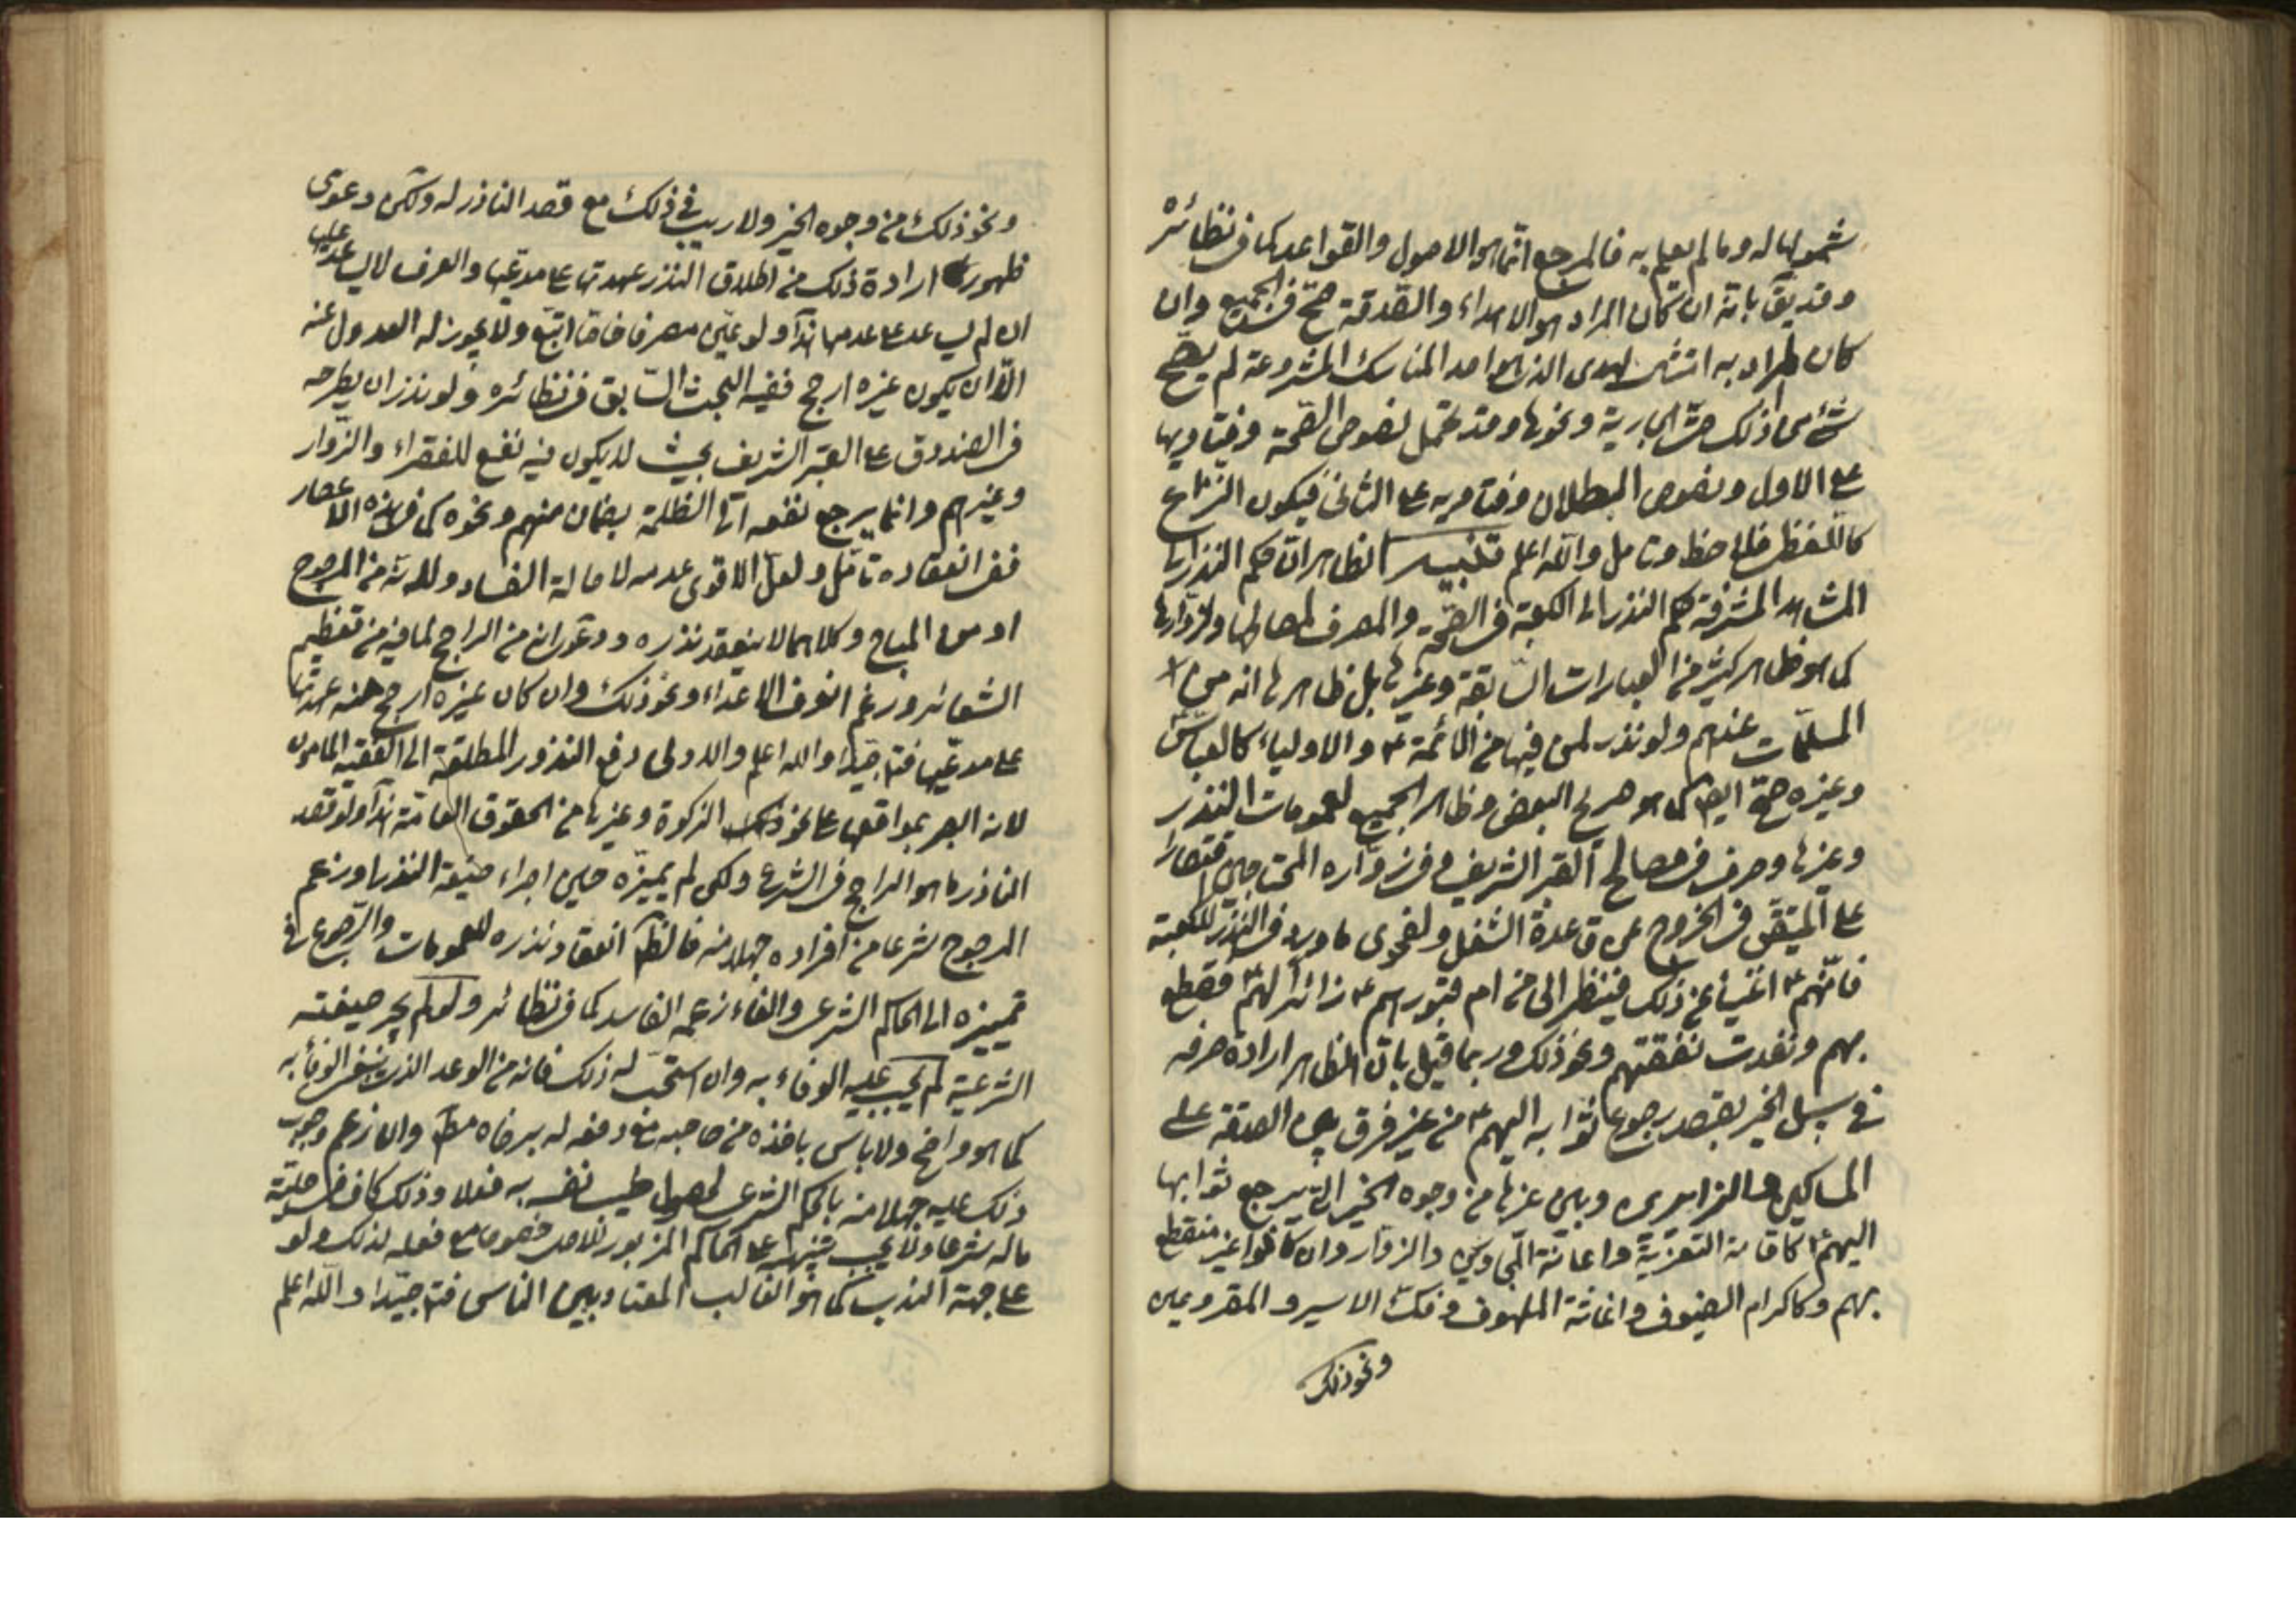 شمولها له وما لم يعلم به فالمرجع انما هو الاصول والقواعد كما في نظائره
وقد يق بانه ان كان المراد هو الاهداء والصدقة صح في الجميع وان
كان المراد به انشاء الهدى الذي هو احد المناسك المشروعة لم يصح
شئ من ذلك حتى الجارية ونحوها وقد تحمل نصوص الصحة وفتاويها
على الاول ونصوص البطلان وفتاويه على الثاني فيكون النزاع
كاللفظي فلاحظ وتامل والله اعلم تنبيه الظاهر ان حكم النذر الى
المشاهد المشرفة حكم النذر الى الكعبة في الصحة والصرف لمصالحها ولزوارها
كما هو ظاهر كثير من العبارات السابقة وغيرها بل ظاهرها انه من
المسلمات عندهم ولو نذر لمن فيها من الائمة ع والاولياء كالعباس
وغيره صح ايضا كما هو صريح البعض وظاهر الجميع لعمومات النذر
وغيرها وصرف في مصالح القبر الشريف وفي زواره المحتاجين اقتصارا
على المتيقن في الخروج عن قاعدة الشغل ولفحوى ما ورد في النذر للكعبة
فانهم ع اغنياء عن ذلك فينظر الى من ام قبورهم ع زائرا لهم ع فقطع
بهم ونفدت نفقتهم ونحو ذلك وربما قيل بان الظاهر ارادة صرفه
في سبل الخير بقصد رجوع ثوابه اليهم ع من غير فرق بين الصدقة على
المساكين والزائرين وبين غيرها من وجوه الخير التي يرجع ثوابها
اليهم ع كاقامة التعزية واعانة المجاورين والزوار وان كانوا غير منقطع
بهم وكاكرام الضيوف واغاثة الملهوف وفك الاسير والمقرومين
ونحو ذلك
ونحو ذلك من وجوه الخير ولا ريب في ذلك مع قصد الناذر له ولكن دعوى
ظهور ارادة ذلك من اطلاق النذر عهدتها على مدعيها والعرف لا يساعد عليها
ان لم يساعد على عدمها هذا ولو عين مصرفا خاصا اتبع ولا يجوز له العدول عنه
الا ان يكون غيره ارجح ففيه البحث السابق في نظائره ولو نذر ان يطرحه
في الصندوق على القبر الشريف بحيث لا يكون فيه نفع للفقراء والزوار
وغيرهم وانما يرجع نفعه الى الظلمة بضمان منهم ونحوه كما في هذه الاعصار
ففي انعقاده تامل ولعل الاقوى عدمه لاصالة الفساد ولانه من المرجوح
او من المباح وكلاهما لا ينعقد نذره ودعوى انه من الراجح لما فيه من تعظيم
الشعائر ورغم انوف الاعداء ونحو ذلك وان كان غيره ارجح منه عهدتها
على مدعيها فتامل جيدا والله اعلم والاولى دفع النذور المطلقة الى الفقيه المامون
لانه ابصر بمواقعها على نحو ذلك الزكوة وغيرها من الحقوق العامة هذا ولو قصد
الناذر ما هو الراجح في الشرع ولكن لم يميزه حين اجراء صيغة النذر او زعم
المرجوح شرعا من افراده جهلا منه فالظ انعقاد نذره للعمومات والرجوع في
تمييزه الى الحاكم الشرعي والغاء زعمه الفاسد كما في نظائره ولو لم يجر صيغته
الشرعية لم يجب عليه الوفاء به وان استحب له ذلك فانه من الوعد الذي ينبغي الوفاء به
كما هو واضح ولا باس باخذه من صاحبه مع دفعه له برضاه مط وان زعم وجوب
ذلك عليه جهلا منه بالحكم الشرعي لحصول طيب نفسه به فعلا وذلك كاف في حلية
ماله شرعا ولا يجب تنبيهه على الحاكم المزبور للاصل خصوصا مع فعله لذلك ولو
على جهة الندب كما هو الغالب المعتاد بين الناس فتامل جيدا والله اعلم